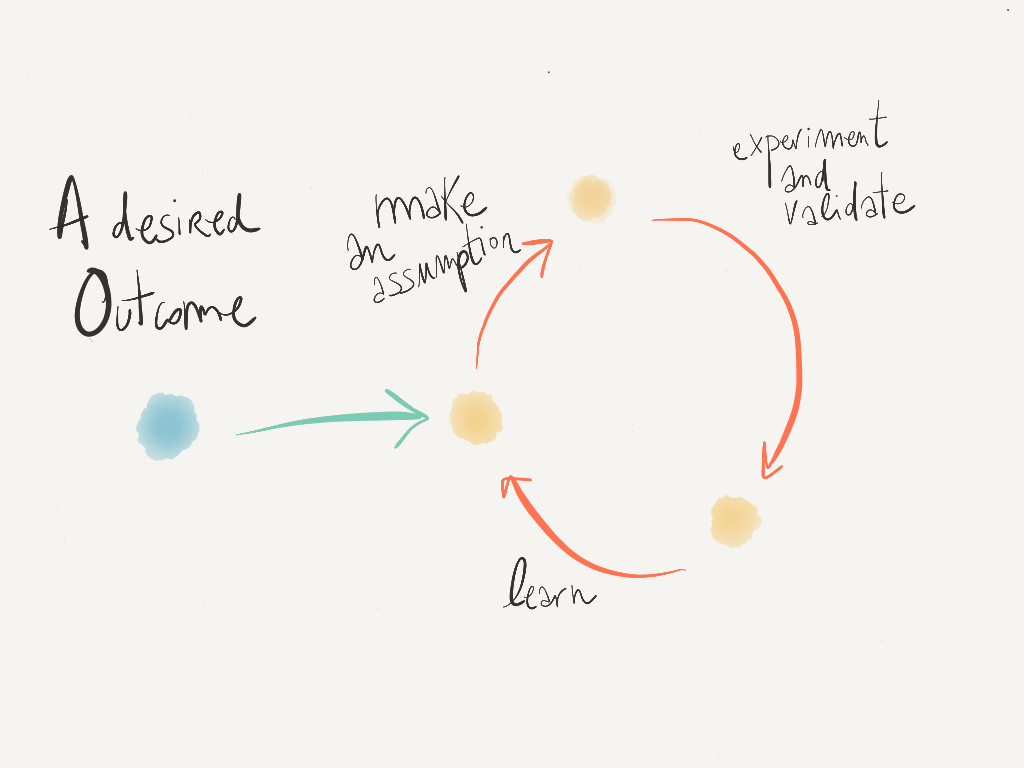 A desired
Outcome
make
an
assumption
experiment
and
validate
learn